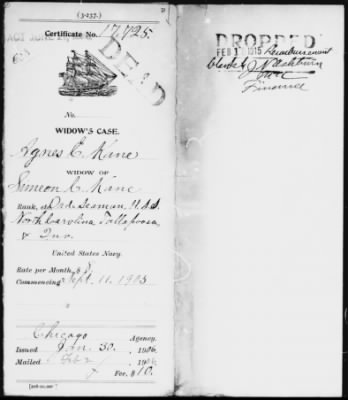 (3-237.)
ACT JUNE
Certificate No. 17,725.
DEAD
No.
WIDOW'S CASE.
Agnes C. Kane
WIDOW OF
Simeon C. Kane
Rank, Ord. Seaman, U.S.S.
North Carolina Tallapoosa
&
United States Navy.
Rate per Month, $8
Commencing Sept. 11, 1905
Chicago Agency.
Issued Jan. 30, 1906
Mailed Feb 2 1906
Fee, $10.
DROPPED
FEB 1 1915 Reimbursement
Washburn
Finance